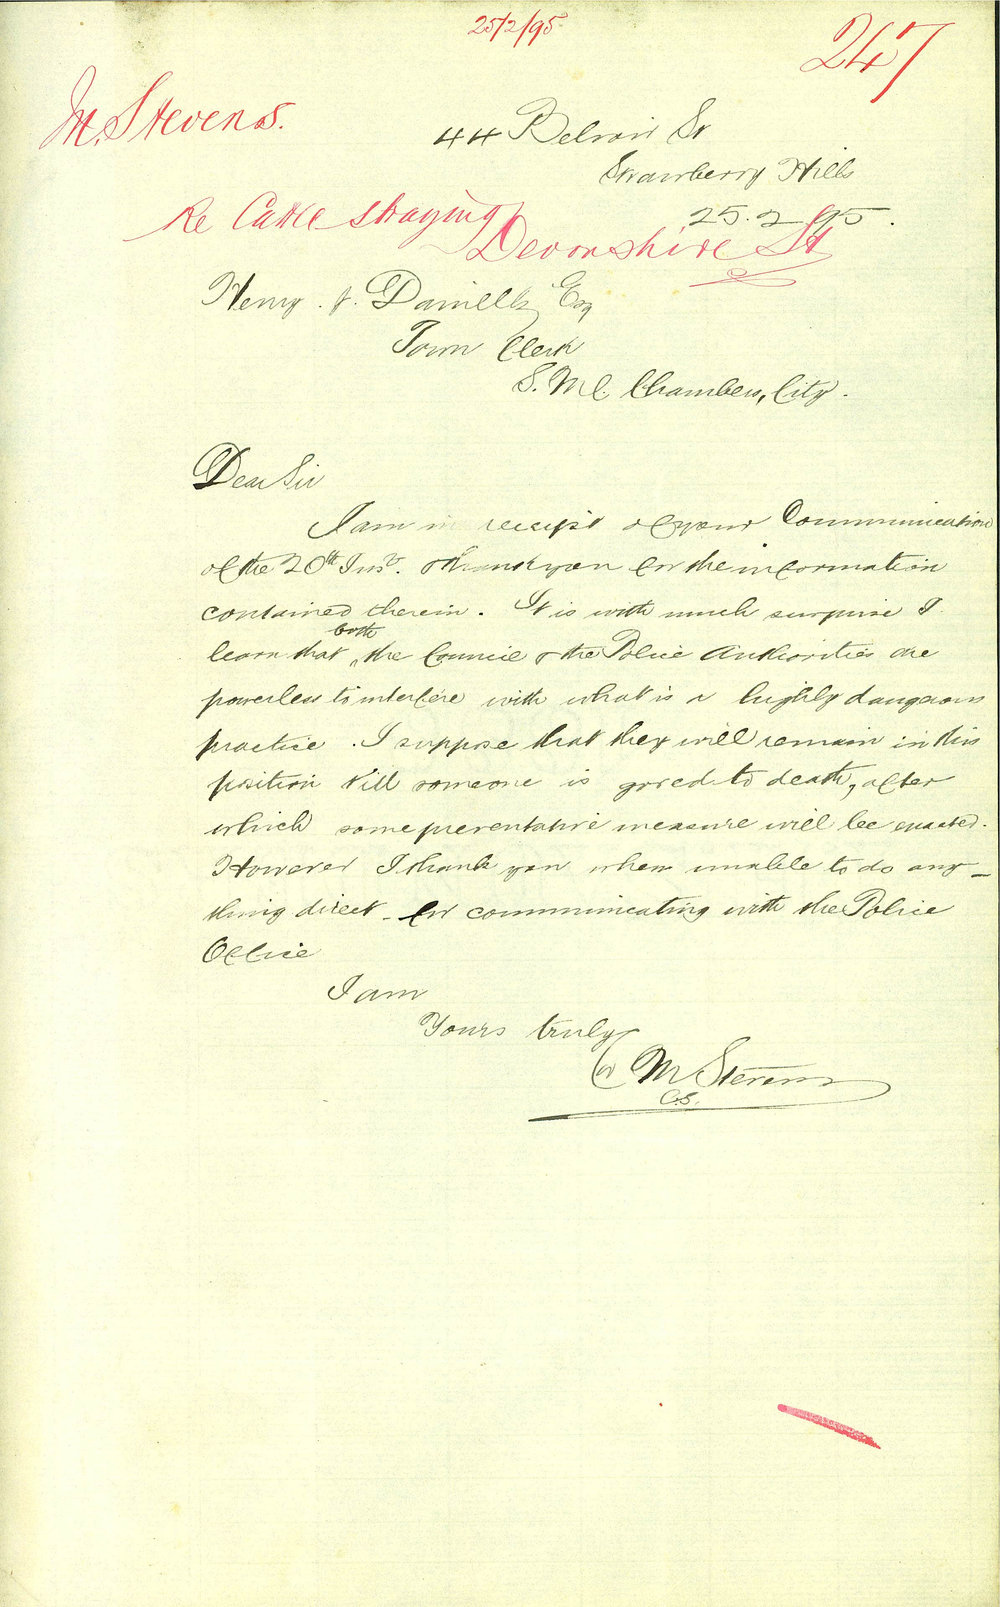 25/2/95
247
M. Stevens.
44 Belvoir St
Strawberry Hills
25.2.95.
Re Cattle straying
Devonshire St
Henry J. Daniell Esq
Town Clerk
S. M. C. Chambers, City.
Dear Sir
I am in receipt of your Communication
of the 20th Inst. & thank you for the information
contained therein. It is with much surprise I
both
learn that the Council & the Police Authorities are
powerless to interfere with what is a highly dangerous
practice. I suppose that they will remain in this
position till someone is gored to death, after
which some preventative measure will be enacted.
However I thank you when unable to do any-
thing direct - for communicating with the Police
Office
I am
Yours truly
for M Stevens
C.S.